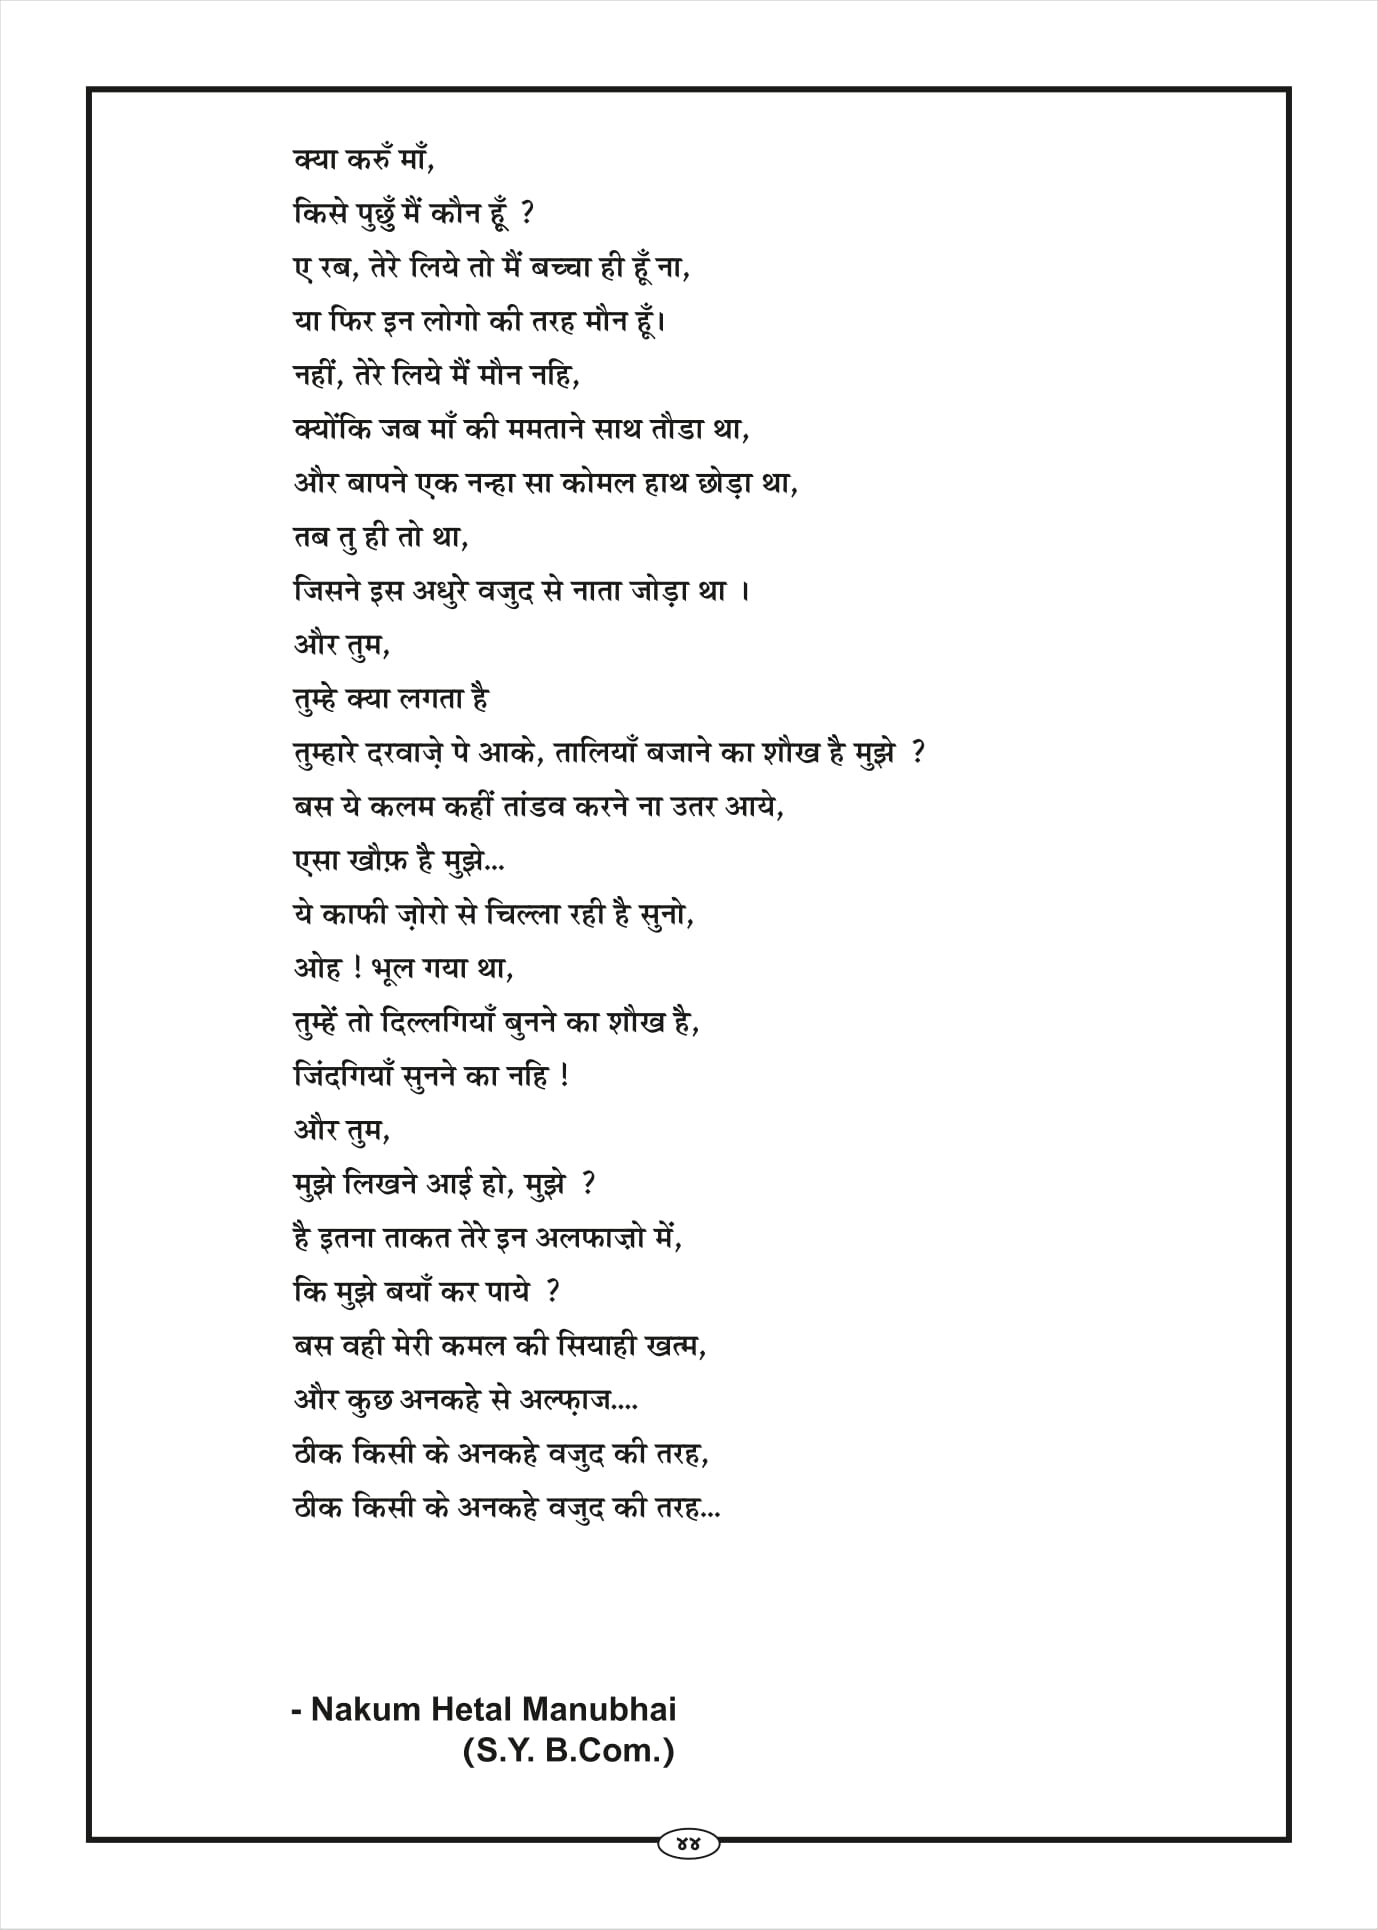 क्या करुँ माँ,
किसे पुछुँ मैं कौन हूँ ?
ए रब, तेरे लिये तो मैं बच्चा ही हूँ ना,
या फिर इन लोगो की तरह मौन हूँ।
नहीं, तेरे लिये मैं मौन नहि,
क्योंकि जब माँ की ममताने साथ तौडा था,
और बापने एक नन्हा सा कोमल हाथ छोड़ा था,
तब तु ही तो था,
जिसने इस अधुरे वजुद से नाता जोड़ा था ।
और तुम,
तुम्हे क्या लगता है
तुम्हारे दरवाज़े पे आके, तालियाँ बजाने का शौख है मुझे ?
बस ये कलम कहीं तांडव करने ना उतर आये,
एसा खौफ़ है मुझे...
ये काफी ज़ोरो से चिल्ला रही है सुनो,
ओह ! भूल गया था,
तुम्हें तो दिल्लगियाँ बुनने का शौख है,
जिंदगियाँ सुनने का नहि !
और तुम,
मुझे लिखने आई हो, मुझे ?
है इतना ताकत तेरे इन अलफाज़ो में,
कि मुझे बयाँ कर पाये ?
बस वही मेरी कमल की सियाही खत्म,
और कुछ अनकहे से अल्फ़ाज....
ठीक किसी के अनकहे वजुद की तरह,
ठीक किसी के अनकहे वजुद की तरह...
- Nakum Hetal Manubhai
(S.Y. B.Com.)
४४